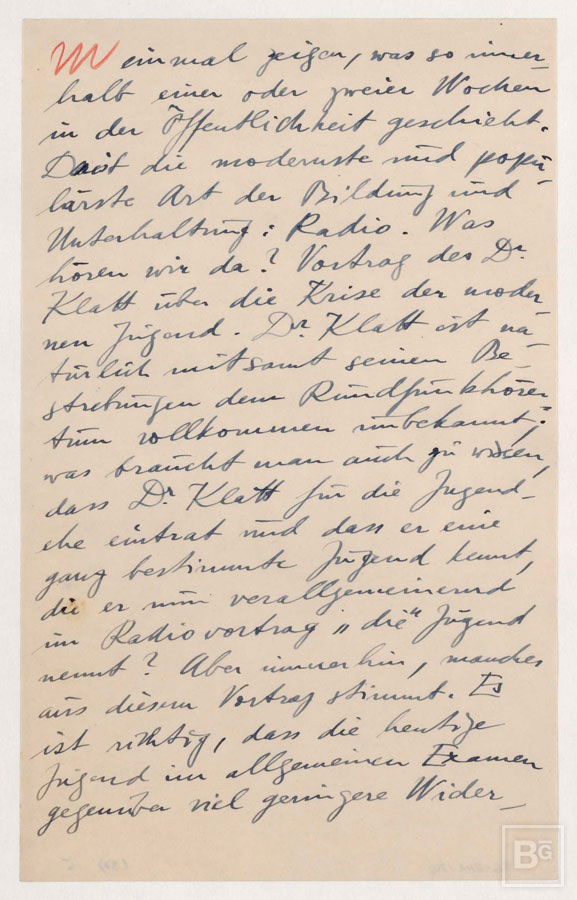 einmal zeigen, was so inner-
halb einer oder zweier Wochen
in der Öffentlichkeit geschieht.
Da ist die modernste und popu-
lärste Art der Bildung und
Unterhaltung: Radio. Was
hören wir da? Vortrag des Dr.
Klatt über die Krise der moder-
nen Jugend. Dr. Klatt ist na-
türlich mitsamt seinen Be-
strebungen dem Rundfunkhörer-
tum vollkommen unbekannt;
was braucht man auch zu wissen,
dass Dr. Klatt für die Jugend-
ehe eintrat und dass er eine
ganz bestimmte Jugend kennt,
die er nun verallgemeinernd
im Radiovortrag „die“ Jugend
nennt? Aber immerhin, manches
aus diesem Vortrag stimmt. Es
ist richtig, dass die heutige
Jugend im allgemeinen Examen
gegenüber viel geringere Wider-
BG